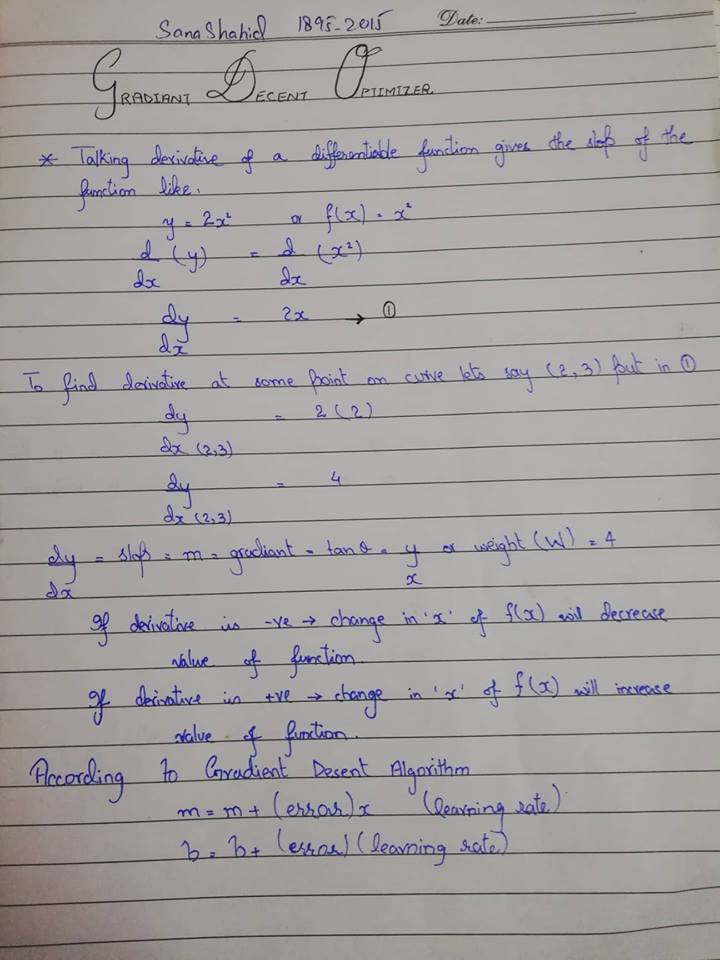 Sana Shahid 1895-2015 Date:
GRADIANT DECENT OPTIMIZER
* Talking derivative of a differentiable function gives the slop of the
function like.
y = 2x² or f(x) = x²
d/dx (y) = d/dx (x²)
dy/dx = 2x → ①
To find derivative at some point on curve lets say (2,3) put in ①
dy/dx (2,3) = 2(2)
dy/dx (2,3) = 4
dy/dx = slop = m = gradiant = tanθ = y/x or weight (W) = 4
If derivative is -ve → change in 'x' of f(x) will decrease
value of function.
If derivative is +ve → change in 'x' of f(x) will increase
value of function.
According to Gradient Desent Algorithm
m = m + (error)x (learning rate)
b = b + (error)(learning rate)